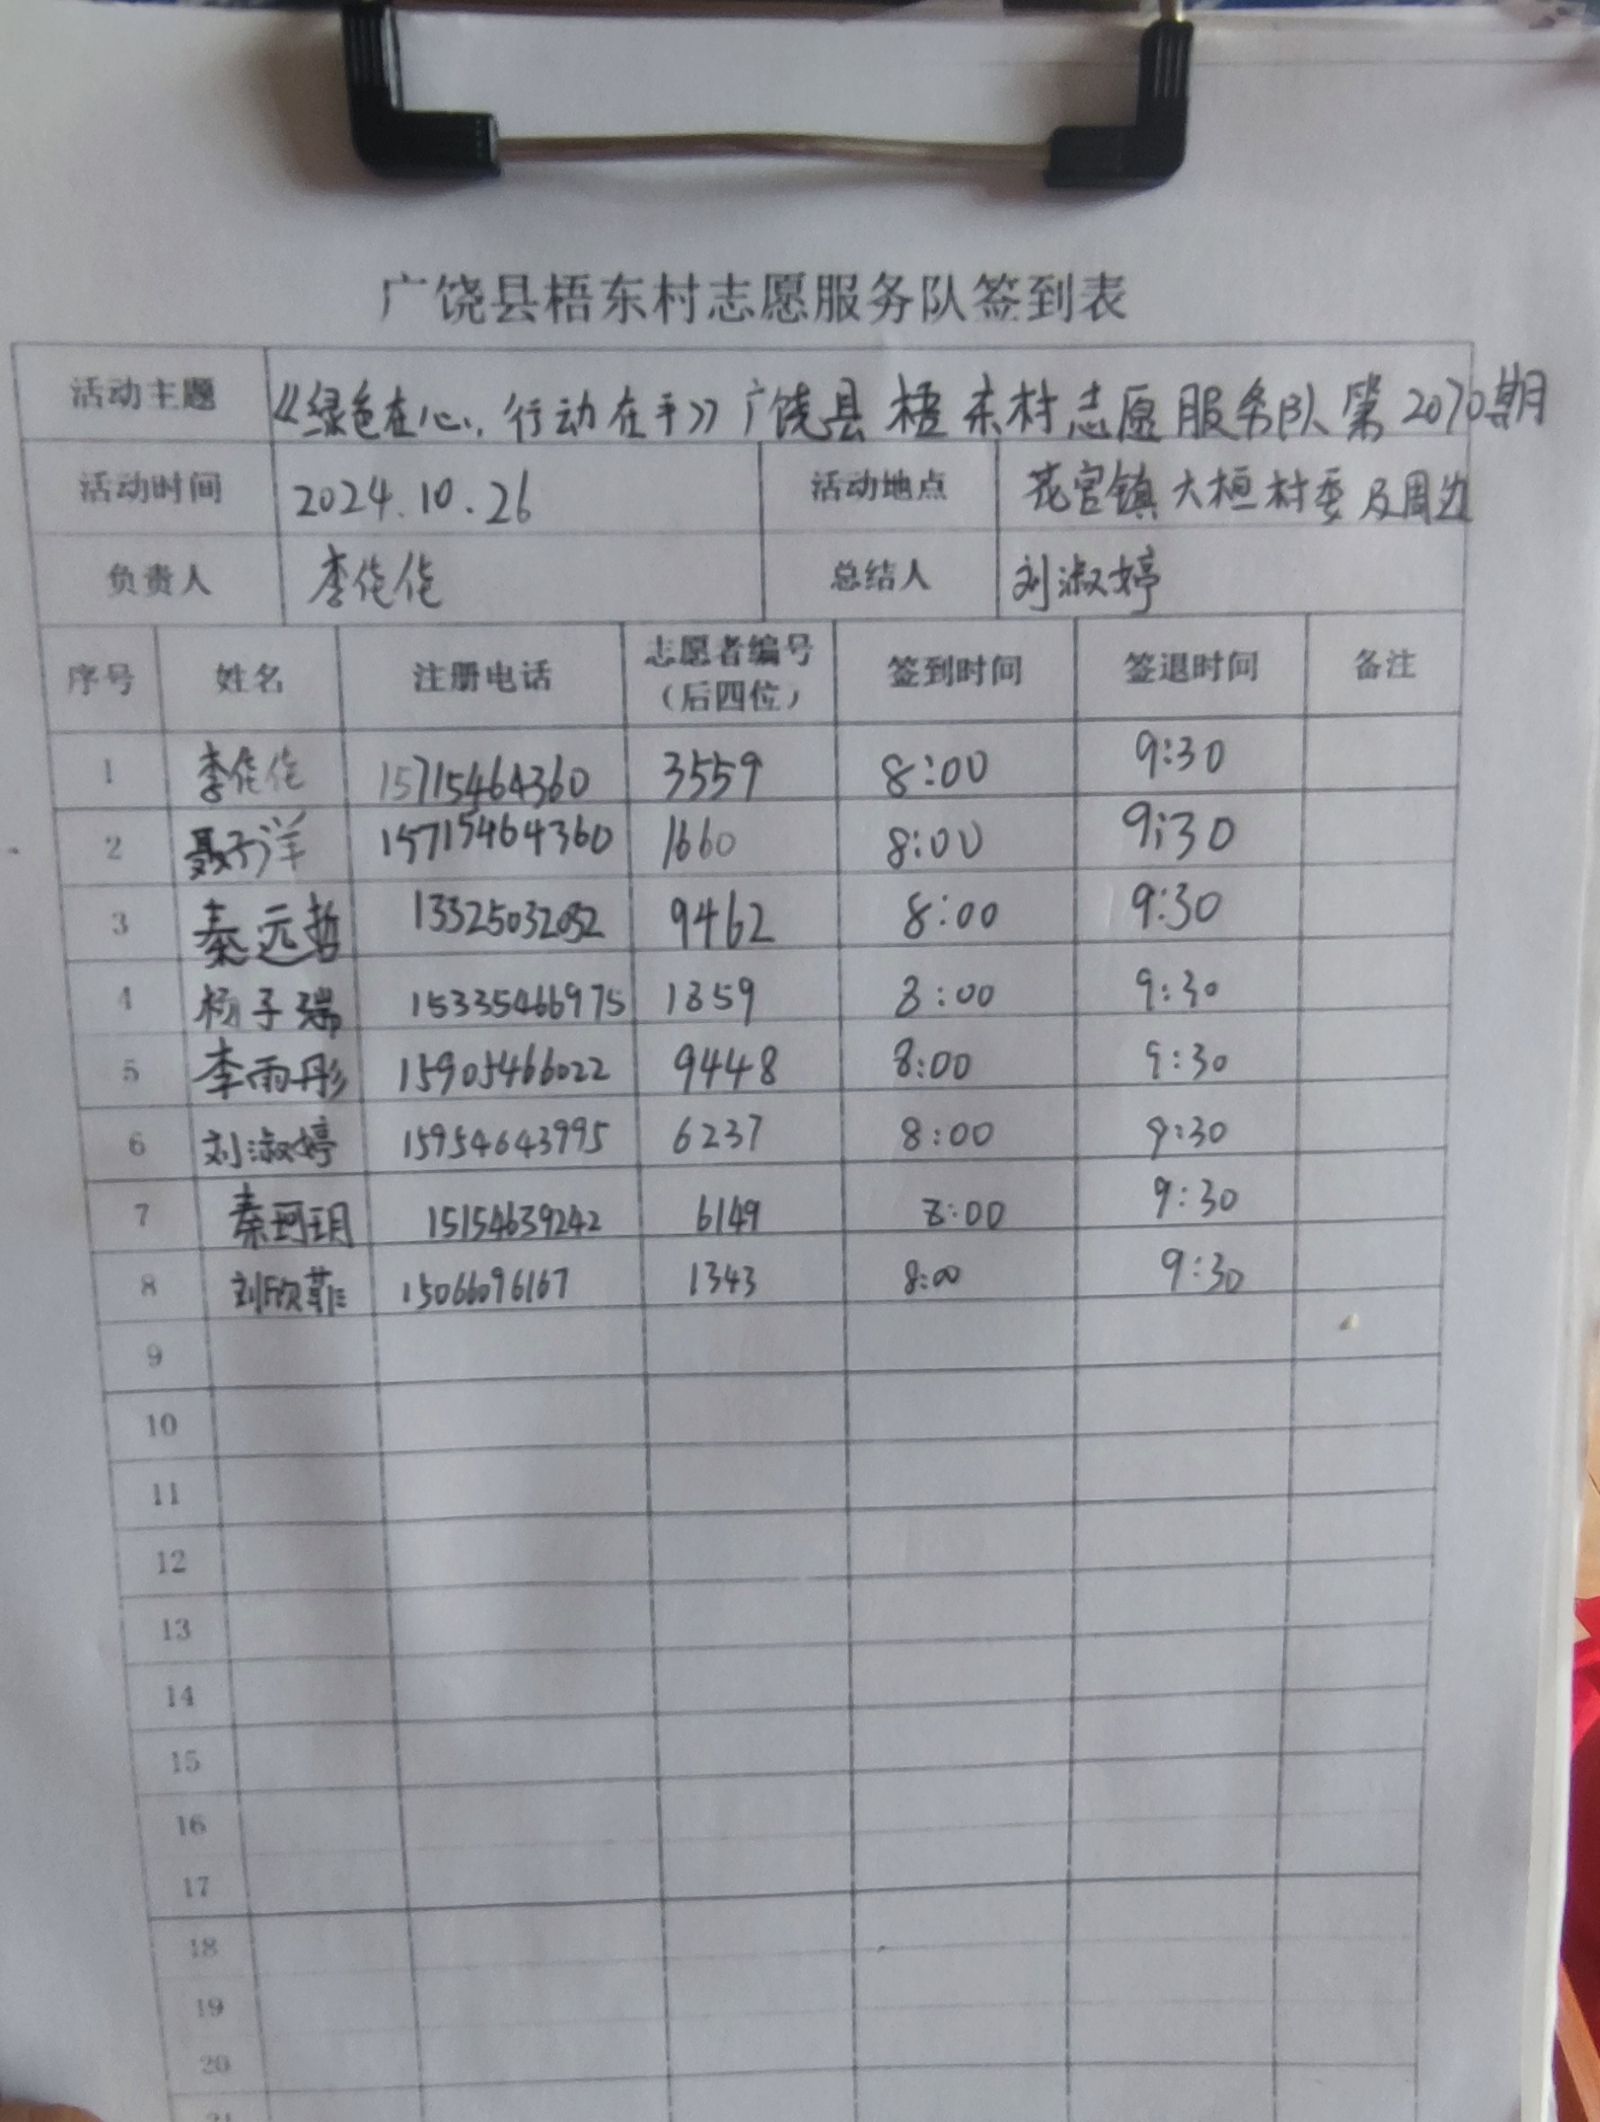 广饶县梧东村志愿服务队签到表
活动主题 《绿色在心，行动在手》广饶县梧东村志愿服务队第2070期
活动时间 2024.10.26 活动地点 花官镇大桓村委及周边
负责人 李佗佗 总结人 刘淑婷
序号 姓名 注册电话 志愿者编号（后四位） 签到时间 签退时间 备注
1 李佗佗 15715464360 3559 8:00 9:30
2 聂子洋 15715464360 1660 8:00 9:30
3 秦远哲 13325032032 9462 8:00 9:30
4 杨子瑞 15335466975 1859 8:00 9:30
5 李雨彤 15905466022 9448 8:00 9:30
6 刘淑婷 15954643995 6237 8:00 9:30
7 秦珂玥 15154639242 6149 8:00 9:30
8 刘欣菲 15066096167 1343 8:00 9:30
9
10
11
12
13
14
15
16
17
18
19
20
21